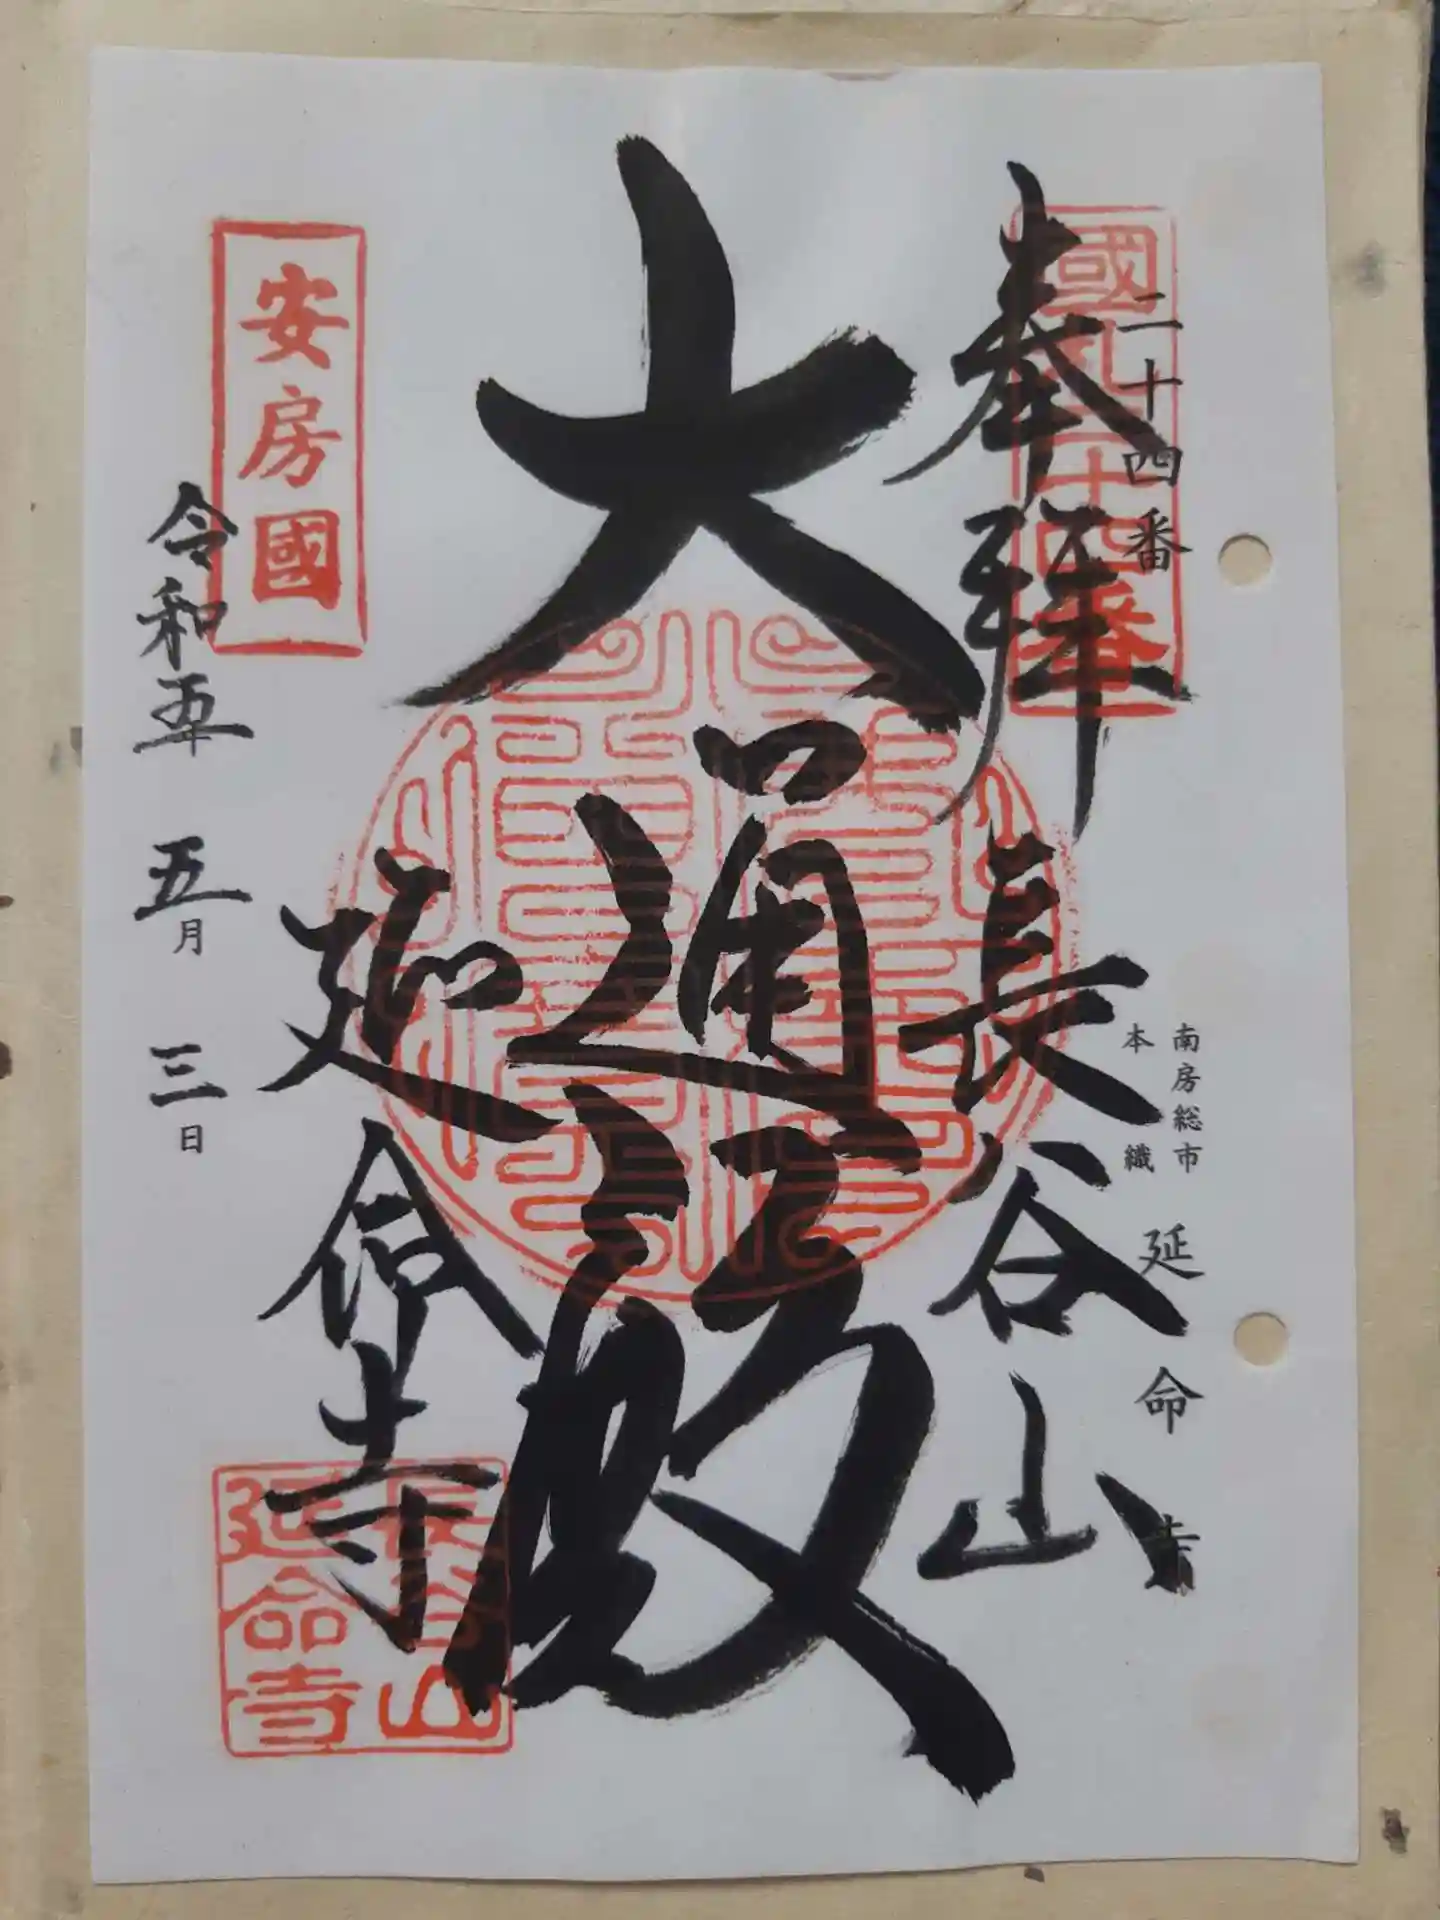 二十四番
國札二十四番
奉拝
南房総市
本織
延命寺
長谷山
大通殿
延命寺
安房國
令和五年
五月
三日
長谷山
延命寺